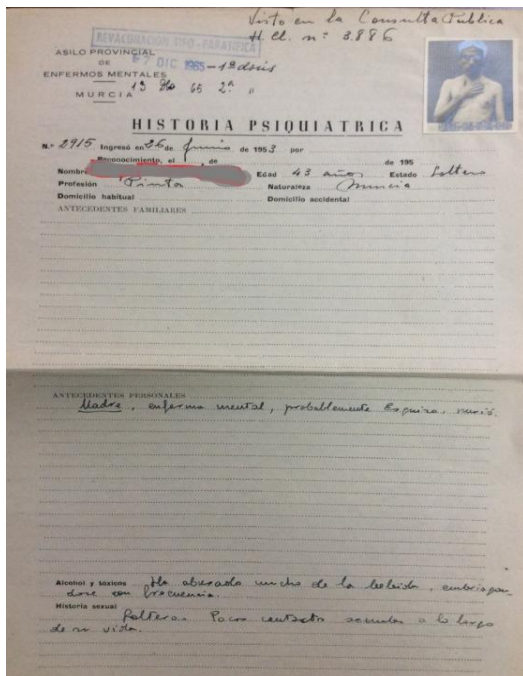 Visto en la Consulta Pública
H. Cl. n.º 3.886
REVACUNACION TIFO - PARATIFICA
ASILO PROVINCIAL
DE
ENFERMOS MENTALES
MURCIA
7 DIC 1965 - 1ª dosis
13 65 2ª "
HISTORIA PSIQUIATRICA
N.º 2915 Ingresó en 26 de Junio de 1953 por
Reconocimiento, el de de 195
Nombre Edad 43 años Estado Soltero
Profesión Pintor Naturaleza Murcia
Domicilio habitual Domicilio accidental
ANTECEDENTES FAMILIARES
ANTECEDENTES PERSONALES
Madre, enferma mental, probablemente Esquizo. murió.
Alcohol y tóxicos Ha abusado mucho de la bebida, embriagan-
dose con frecuencia.
Historia sexual
Soltero. Pocos contactos sexuales a lo largo
de su vida.